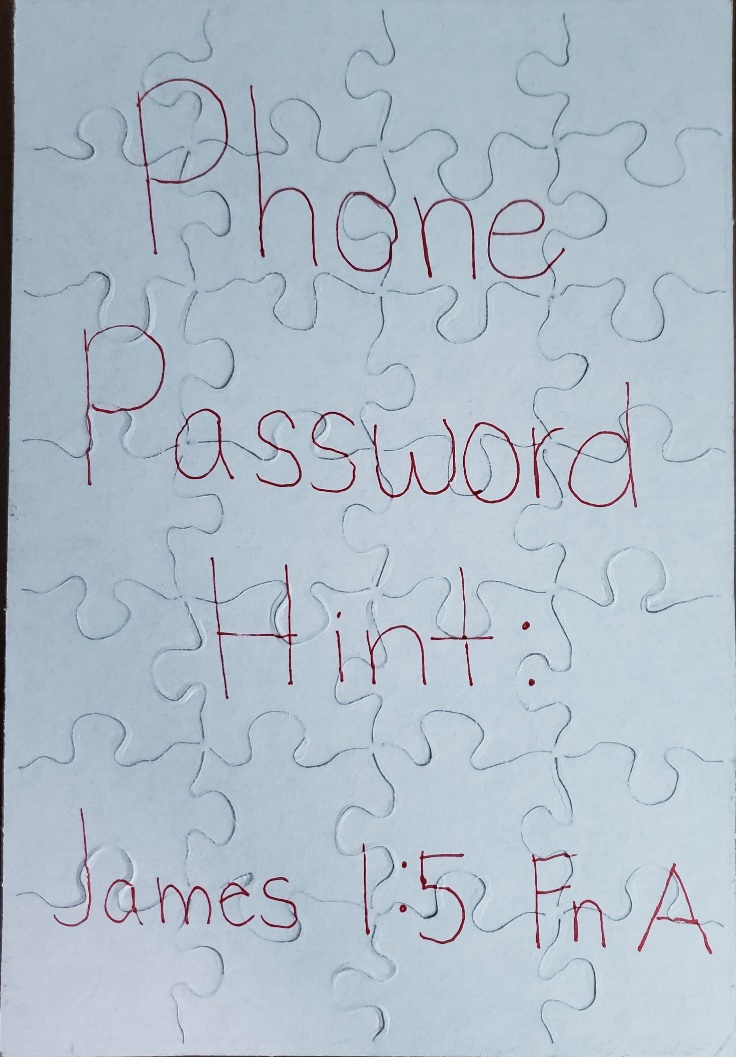 Phone
Password
Hint:
James 1:5 Fn A